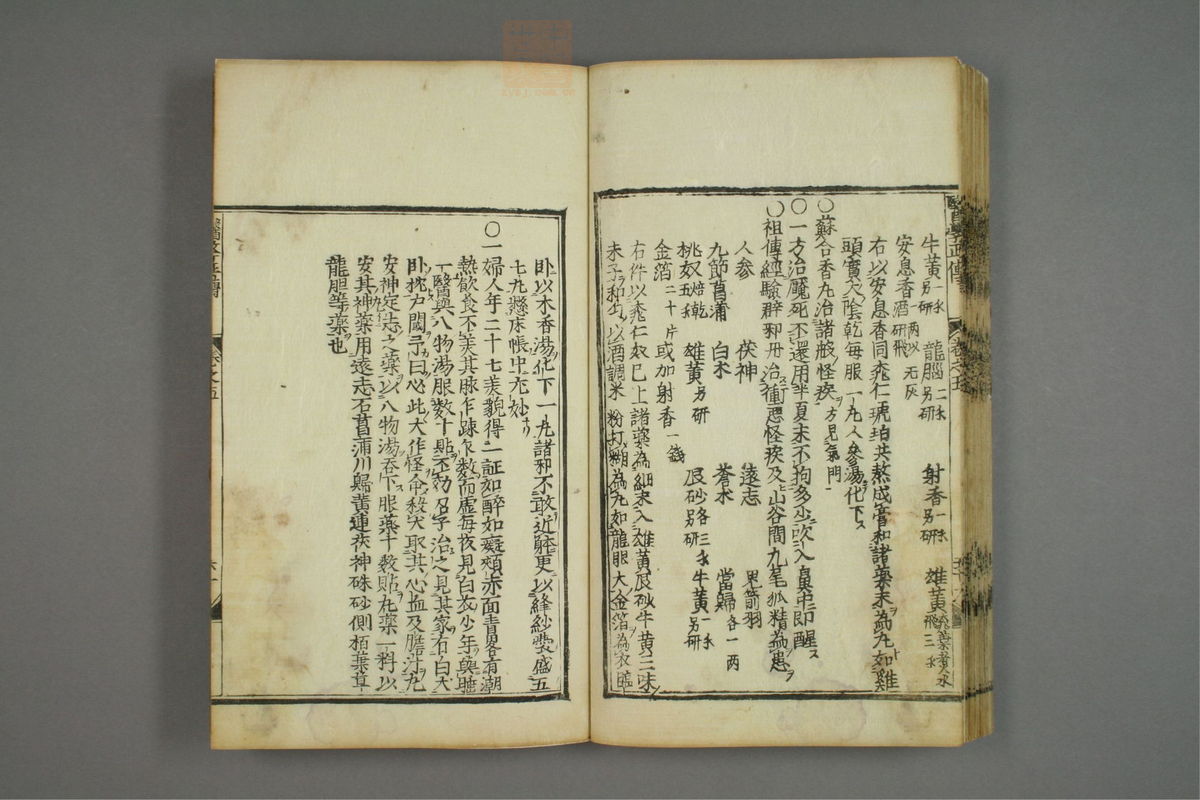 醫學正傳
卷之五
牛黃一戔另研 龍腦二戔另研 射香一戔另研 雄黃
安息香一兩以无灰酒研飛
右以安息香同桃仁琥珀共熬成膏和諸藥末為丸如雞
頭實大陰乾每服一丸人參湯化下
○蘇合香丸治諸般怪疾方見氣門
○一方治魘死不還用半夏末不拘多少吹入鼻中即醒
○祖傳經驗辟邪丹治衝惡怪疾及山谷間九尾狐精為患
人參 茯神 遠志 鬼箭羽
九節菖蒲 白朮 蒼朮 當歸各一兩
桃奴五戔焙乾 雄黃另研 辰砂各三戔另研 牛黃一戔另研
金箔二十片或加射香一錢
右件以桃仁奴已上諸藥為細末入雄黃辰砂牛黃三味
末子和勻以酒調米粉打糊為丸如龍眼大金箔為衣臨
臥以木香湯化下一丸諸邪不敢近躰更以絳紗囊盛五
七丸懸床帳中尤妙
○一婦人年二十七美貌得一証如醉如癡頰赤面青畧有潮
熱飲食不美其脉乍踈乍數而虛每夜見白衣少年與睡
一醫與八物湯服數十貼不効召予治之見其家有白犬
臥枕戶閾予曰必此犬作怪命殺犬取其心血及膽汁丸
安神定志之藥以八物湯吞下服藥十數貼丸藥一料以
安其神藥用遠志石菖蒲川歸黃連茯神硃砂側栢葉草
龍胆等藥也
卷之五